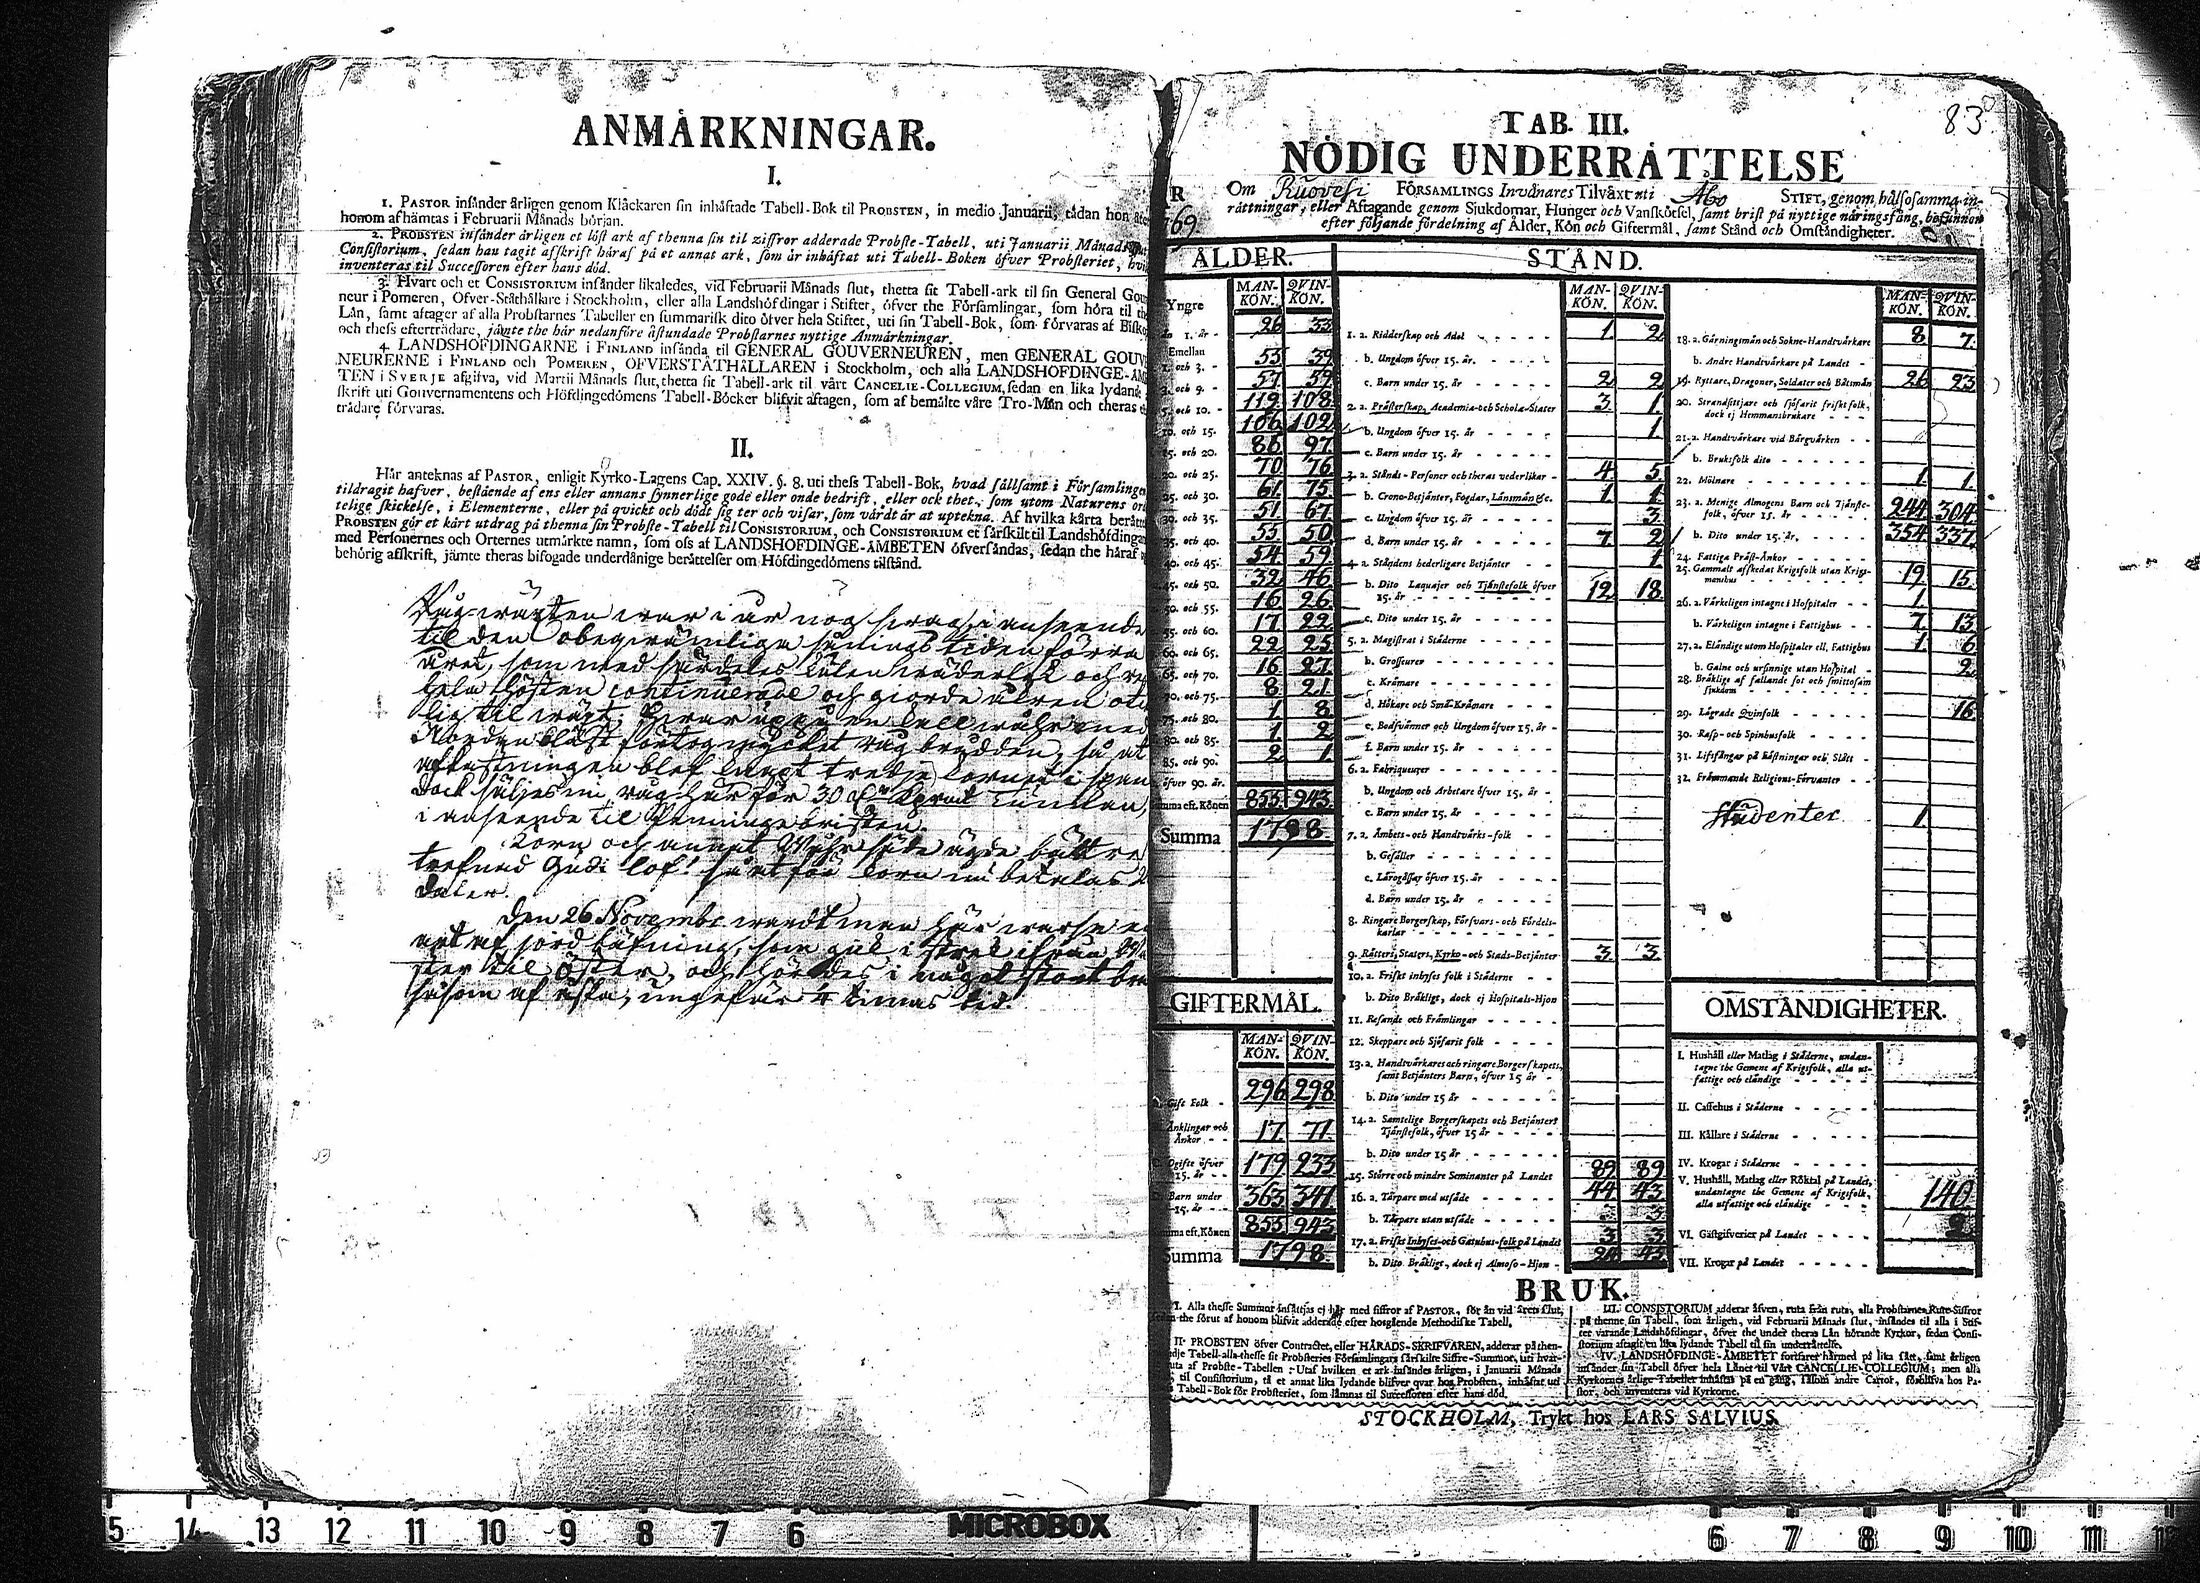 ANMÅRKNINGAR.
I.
1. PASTOR infånder årligen genom Klåckaren fin inhåftade Tabell-Bok til PROBSTEN, in medio Januarii, tådan hon åter
honom afhåmtas i Februarii Månads början.
2. PROBSTEN infånder årligen et löft ark af thenna fin til ziffror adderade Probfte-Tabell, uti Januarii Månads
Confiftorium, fedan han tagit affkrift håraf på et annat ark, fom år inhåftat uti Tabell-Boken öfver Probfteriet,
inventeras til Succefforen efter hans död.
3. Hvart och et CONSISTORIUM infånder likaledes, vid Februarii Månads flut, thetta fit Tabell-ark til fin General Gou
neur i Pomeren, Öfver-Ståthållare i Stockholm, eller alla Landshöfdingar i Stifter, öfver the Förfamlingar, fom höra til
Lån, famt aftager af alla Probftarnes Tabeller en fummarifk dito öfver hela Stiftet, uti fin Tabell-Bok, fom förvaras af Bifko
och thefs efterträdare, jåmte the hår nedanföre åftundade Probftarnes nyttige Anmårkningar.
4. LANDSHÖFDINGARNE i FINLAND infånda til GENERAL GOUVERNEUREN, men GENERAL GOUV
NEURERNE i FINLAND och POMEREN, ÖFVERSTÅTHÅLLAREN i Stockholm, och alla LANDSHÖFDINGE-ÅM
TEN i SVERJE afgifva, vid Martii Månads flut, thetta fit Tabell-ark til vårt CANCELIE-COLLEGIUM, fedan en lika lydande
fkrift uti Gouvernamentens och Höfdingedömens Tabell-Böcker blifvit aftagen, fom af bemålte våre Tro-Mån och theras
trådare förvaras.
II.
Hår anteknas af PASTOR, enligit Kyrko-Lagens Cap. XXIV. §. 8. uti thefs Tabell-Bok, hvad fållfamt i Förfamlingen
tildragit hafver, beftående af ens eller annans fynnerlige gode eller onde bedrift, eller ock thet, fom utom Naturens
telige fkickelfe, i Elementerne, eller på qvickt och dödt fig ter och vifar, fom vårdt år at uptekna. Af hvilka kårta
PROBSTEN gör et kårt utdrag på thenna fin Probfte-Tabell til CONSISTORIUM, och CONSISTORIUM et fårfkilt til Landshöfdingar
med Perfonernes och Orternes utmårkte namn, fom ofs af LANDSHÖFDINGE-ÅMBETEN öfverfåndas, fedan the håraf
behörig affkrift, jåmte theras bifogade underdånige beråttelfer om Höfdingedömens tilftånd.
war i år nog i anseende
til den obeqwämliga sånings tiden förra
året, som med
hela hösten continuerade och giorde åkren
lig til wäxt.
Nordan blåst förtog mycket råg brådden, så at
blef knapt tredje kornet
Dock säljes nu råg här för 30
i anseende til Penninge bristen.
Korn och annat Wåhr säde ägde bättre
trefnad Gudi lof! så at för korn nu betalas
Daler.
Den 26 Novembr. wardt man här warse
af jord bäfning, som gick i streck ifrån
ster til öster, och hördes i något stort
såsom af åska, ungefär 4 timmas tid.
83
TAB. III.
NÖDIG UNDERRÅTTELSE
Om Ruovesi FÖRSAMLINGS Invånares Tilvåxt uti Åbo STIFT, genom hålfofamma in-
råttningar, eller Aftagande genom Sjukdomar, Hunger och Vanfkötfel, famt brift på nyttige näringsfång, befunnen
69 efter följande fördelning af Ålder, Kön och Giftermål, famt Stånd och Omftåndigheter.
ÅLDER. STÅND.
MAN-KÖN. QVIN-KÖN.
Yngre
ån 1. år - 26 33
Emellan
1. och 3. - 53 39
3. och 9. - 57 59
5. och 10. - 119 108
10. och 15. 106 102
15. och 20. 86 97
20. och 25. 70 76
25. och 30. 61 75
30. och 35. 51 67
35. och 40. 53 50
40. och 45. 54 59
45. och 50. 32 46
50. och 55. 16 26
55. och 60. 17 22
60. och 65. 22 25
65. och 70. 16 27
70. och 75. 8 21
75. och 80. 1 8
80. och 85. 1 2
85. och 90. 2 1
öfver 90. år.
Summa eft. Könen 853 943
Summa 1798
GIFTERMÅL.
MAN-KÖN. QVIN-KÖN.
Gift Folk - 296 298
Änklingar och Ånkor - - 17 71
Ogifte öfver 15. år - - 179 233
Barn under 15. år - - 363 341
Summa eft. Könen 855 943
Summa 1798
MAN-KÖN. QVIN-KÖN.
1. a. Ridderfkap och Adel 1 2
b. Ungdom öfver 15. år.
c. Barn under 15. år 2 2
2. a. Pråfterfkap, Academia- och Scholæ-Stater 3 1
b. Ungdom öfver 15. år 1
c. Barn under 15. år
3. a. Stånds-Perfoner och theras vederlikar 4 5
b. Crono-Betjånter, Fogdar, Lånsmån &c. 1 1
c. Ungdom öfver 15. år 3
d. Barn under 15. år 7 2
4. a. Ståndens hederligare Betjånter 1
b. Dito Laquajer och Tjånftefolk öfver 15. år 12 18
c. Dito under 15. år
5. a. Magiftrat i Ståderne
b. Groffeurer
c. Kråmare
d. Hökare och Små-Kråmare
e. Bodfvånner och Ungdom öfver 15. år
f. Barn under 15. år
6. a. Fabriqueurer
b. Ungdom och Arbetare öfver 15. år
c. Barn under 15. år
7. a. Åmbets- och Handtvårks-folk
b. Gefåller
c. Lårogåffar öfver 15. år
d. Barn under 15. år
8. Ringare Borgerfkap, Förfvars- och Fördels-karlar
9. Råtteri, Staters, Kyrko- och Stads-Betjånter 3 3
10. a. Frifkt inhyfes folk i Ståderne
b. Dito Bråkligt, dock ej Hofpitals-Hjon
11. Refande och Fråmlingar
12. Skeppare och Sjöfarit folk
13. a. Handtvårkares och ringare Borgerfkapets, famt Betjånters Barn, öfver 15 år
b. Dito under 15 år
14. a. Samtelige Borgerfkapets och Betjånters Tjånftefolk, öfver 15 år
b. Dito under 15 år
15. Större och mindre Seminanter på Landet 89 89
16. a. Tårpare med utfåde 44 43
b. Tårpare utan utfåde 3 3
17. a. Frifkt Inhyfes- och Gatuhus-folk på Landet 3 3
b. Dito Bråkligt, dock ej Almofo-Hjon 45
MAN-KÖN. QVIN-KÖN.
18. a. Gårningsmån och Sokne-Handtvårkare 8 7
b. Andre Handtvårkare på Landet
19. Ryttare, Dragoner, Soldater och Båtsmån 26 23
20. Strandfittjare och fjöfarit frifkt folk, dock ej Hemmansbrukare
21. a. Handtvårkare vid Bårgvårken
b. Bruksfolk dito
22. Mölnare 1 1
23. a. Menige Almogens Barn och Tjånfte-folk, öfver 15. år 244 304
b. Dito under 15. år. 354 337
24. Fattiga Pråft-Ånkor
25. Gammalt affkedat Krigsfolk utan Krigsmanshus 19 15
26. a. Vårkeligen intagne i Hofpitaler 1
b. Vårkeligen intagne i Fattighus 7 13
27. a. Elåndige utom Hofpitaler ell. Fattighus 1 6
b. Galne och urfinnige utan Hofpital 2
28. Bråklige af fallande fot och fmittofam fjukdom
29. Lågrade Qvinfolk 16
30. Rafp- och Spinhusfolk
31. Lifsfångar på Fåftningar och Slått
32. Fråmmande Religions-Förvanter
Studenter 1
OMSTÅNDIGHETER.
I. Hushåll eller Matlag i Ståderne, undantagne the Gemene af Krigsfolk, alla utfattige och elåndige
II. Caffehus i Ståderne
III. Kållare i Ståderne
IV. Krogar i Ståderne
V. Hushåll, Matlag eller Röktal på Landet, undantagne the Gemene af Krigsfolk, alla utfattige och elåndige 140
VI. Gåftgifverier på Landet 2
VII. Krogar på Landet
BRUK.
I. Alla theffe Summor infåttjas ej hår med fiffror af PASTOR, för ån vid årets flut,
fedan the förut af honom blifvit adderade efter hosgående Methodifke Tabell.
II. PROBSTEN öfver Contractet, eller HÅRADS-SKRIFVAREN, adderar på then-
til Confiftorium, tå et annat lika lydande blifver qvar hos Probften, inhåftat uti
Tabell-Bok för Probfteriet, fom låmnas til Succefforen efter hans död.
III. CONSISTORIUM adderar åfven, ruta från ruta, alla Probftarnes Rute-Siffror
på thenne fin Tabell, fom årligen, vid Februarii Månads flut, infåndes til alla i Stif-
tet varande Landshöfdingar, öfver the under theras Lån hörande Kyrkor, fedan Confi-
ftorium aftagit en lika lydande Tabell til fin underråttelfe.
IV. LANDSHÖFDINGE-ÅMBETET fortfaret hårmed på lika fått, famt årligen
infånder fin Tabell öfver hela Lånet til Vårt CANCELLIE-COLLEGIUM; men alla
Kyrkornes årlige Tabeller inhåftas på en gång, fåfom andre Cartor, förblifva hos Pa-
ftor, och inventeras vid Kyrkorne.
STOCKHOLM, Trykt hos LARS SALVIUS.
15 14 13 12 11 10 9 8 7 6 MICROBOX 6 7 8 9 10 11 12